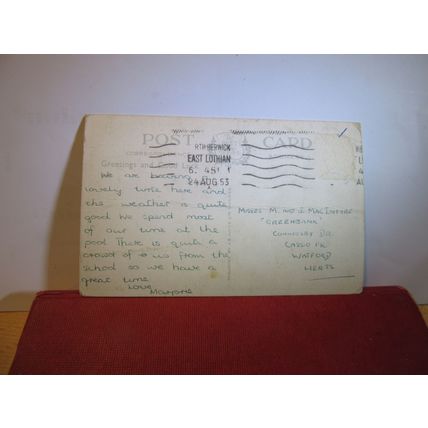 POST CARD
Greetings and
RTH BERWICK
EAST LOTHIAN
24 AUG 53
We are
lovely time here and
the weather is quite
good We spend most
of our time at the
pool There is quite a
crowd of us from the
school so we have a
great time
Love
Marjorie
Misses M. and J. MacIntyre
"GREENBANK"
DR.
WATFORD
HERTS